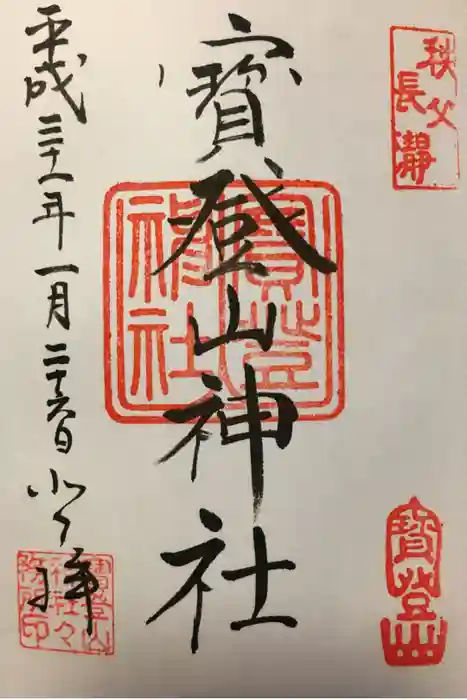 秩父
長瀞
寶登山
寶登山神社
寶登
神社
平成三十一年一月二十六日
拝
寶登山
神社々
務所印